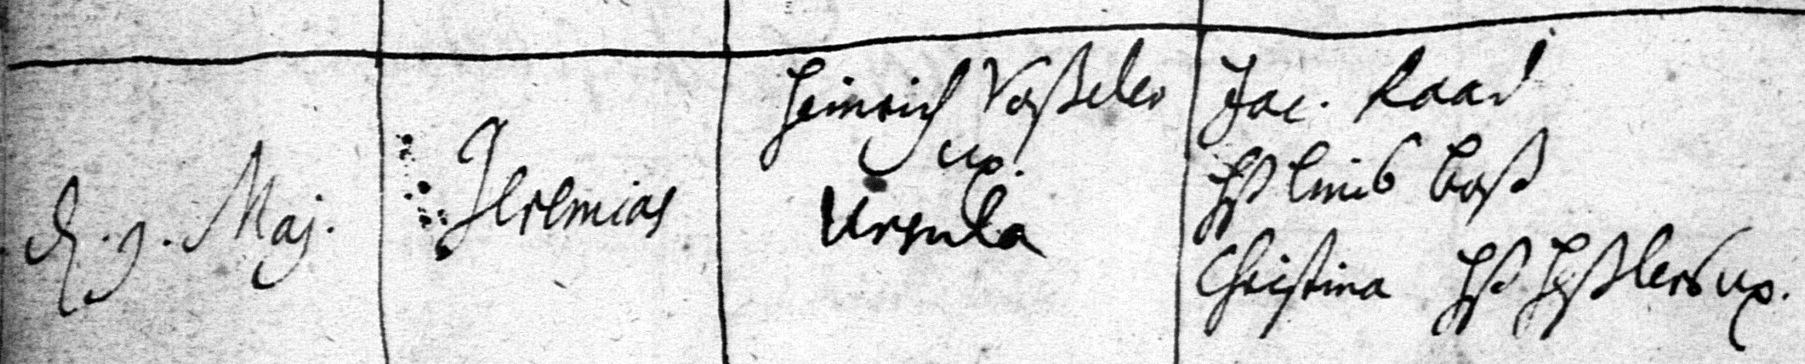 d. 9. Maj.
Jeremias
Heinrich Voßeler
ux.
Ursula
Jac. Raad
Hß
Christina Hß ux.